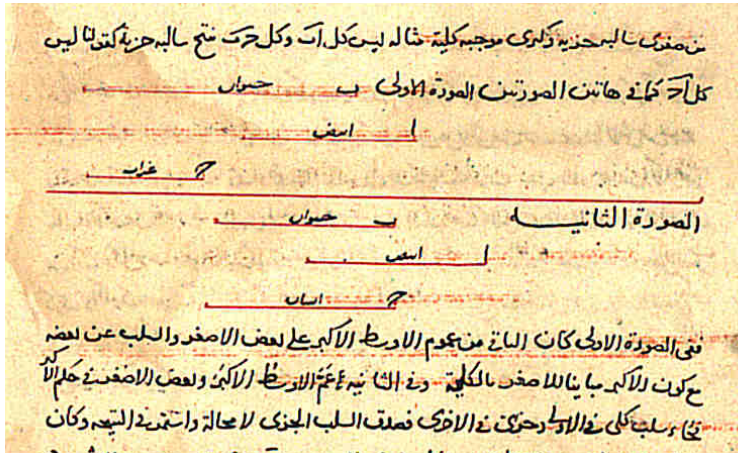 من صغرى سالبه جزيه وكبرى موجبه كلية مثاله ليس كل اب وكل جب نتج سالبه جزية كقولنا ليس
كل اج كما في هاتين الصورتين الصورة الاولى ب حيوان
ا ابيض
ج غراب
الصورة الثانيـــه ب حيوان
ا ابيض
ج انسان
ففي الصورة الاولى كان الباتي من عموم الاوسط الاكبر على بعض الاصغر والسلب عن بعضه
مع كون الاكبر مباينا للاصغر بالكلية وفي الثانيه عم الاوسط الاكبر وبعض الاصغر في حكم الاكبر
سلب كلي في الاولى وجزئي في الاخرى فصدق السلب الجزي لا محالة واستمر في النتيجه وكان